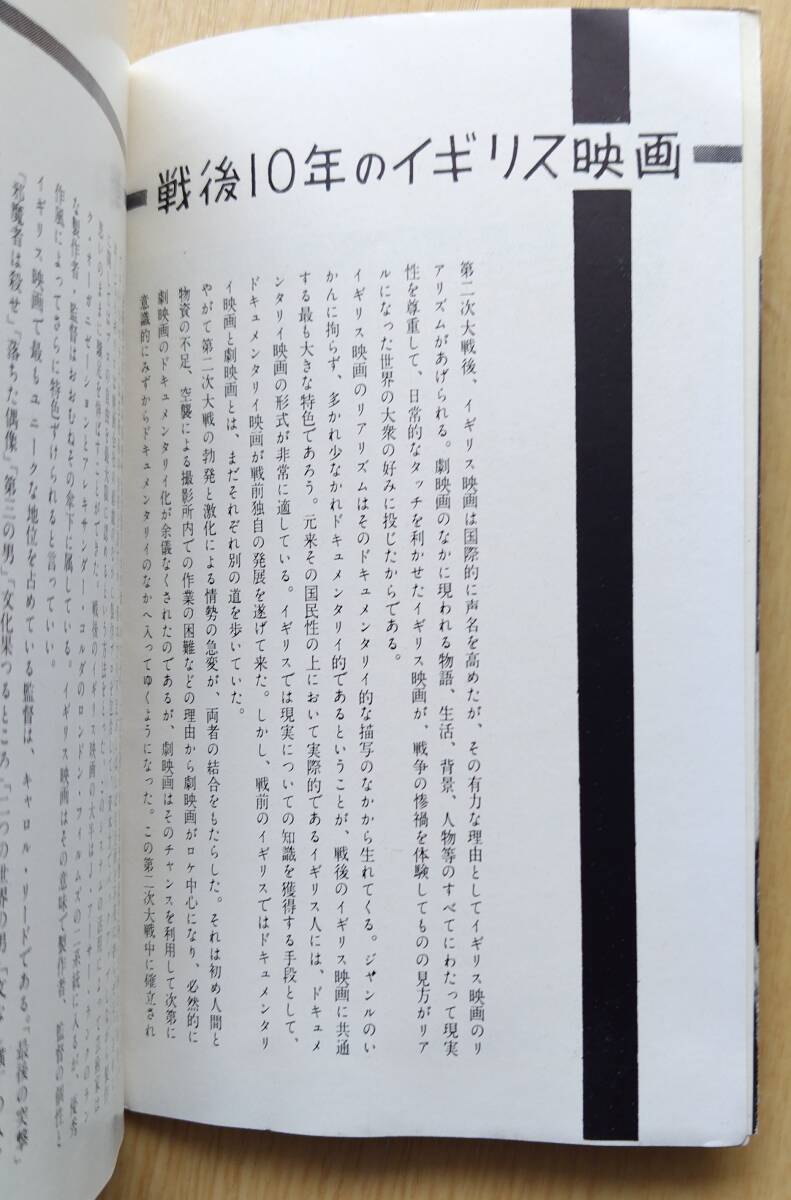 戦後10年のイギリス映画
第二次大戦後、イギリス映画は国際的に声名を高めたが、その有力な理由としてイギリス映画のリ
アリズムがあげられる。劇映画のなかに現われる物語、生活、背景、人物等のすべてにわたって現実
性を尊重して、日常的なタッチを利かせたイギリス映画が、戦争の惨禍を体験してものの見方がリア
ルになった世界の大衆の好みに投じたからである。
イギリス映画のリアリズムはそのドキュメンタリイ的な描写のなかから生れてくる。ジャンルのい
かんに拘らず、多かれ少なかれドキュメンタリイ的であるということが、戦後のイギリス映画に共通
する最も大きな特色であろう。元来その国民性の上において実際的であるイギリス人には、ドキュメ
ンタリイ映画の形式が非常に適している。イギリスでは現実についての知識を獲得する手段として、
ドキュメンタリイ映画が戦前独自の発展を遂げて来た。しかし、戦前のイギリスではドキュメンタリ
イ映画と劇映画とは、まだそれぞれ別の道を歩いていた。
やがて第二次大戦の勃発と激化による情勢の急変が、両者の結合をもたらした。それは初め人間と
物資の不足、空襲による撮影所内での作業の困難などの理由から劇映画がロケ中心になり、必然的に
劇映画のドキュメンタリイ化が余儀なくされたのであるが、劇映画はそのチャンスを利用して次第に
意識的にみずからドキュメンタリイのなかへ入ってゆくようになった。この第二次大戦中に確立され
ク・オーガニゼーションとアレキサンダー・コルダのロンドン・フィルムズの二系統に入るが、優秀
な製作者・監督はおおむねその傘下に属している。イギリス映画はその意味で製作者、監督の個性と
作風によってさらに特色ずけられると言っていい。
イギリス映画で最もユニークな地位を占めている監督は、キャロル・リードである。「最後の突撃」
「邪魔者は殺せ」「落ちた偶像」「第三の男」「文化果つるところ」「二つの世界の男」